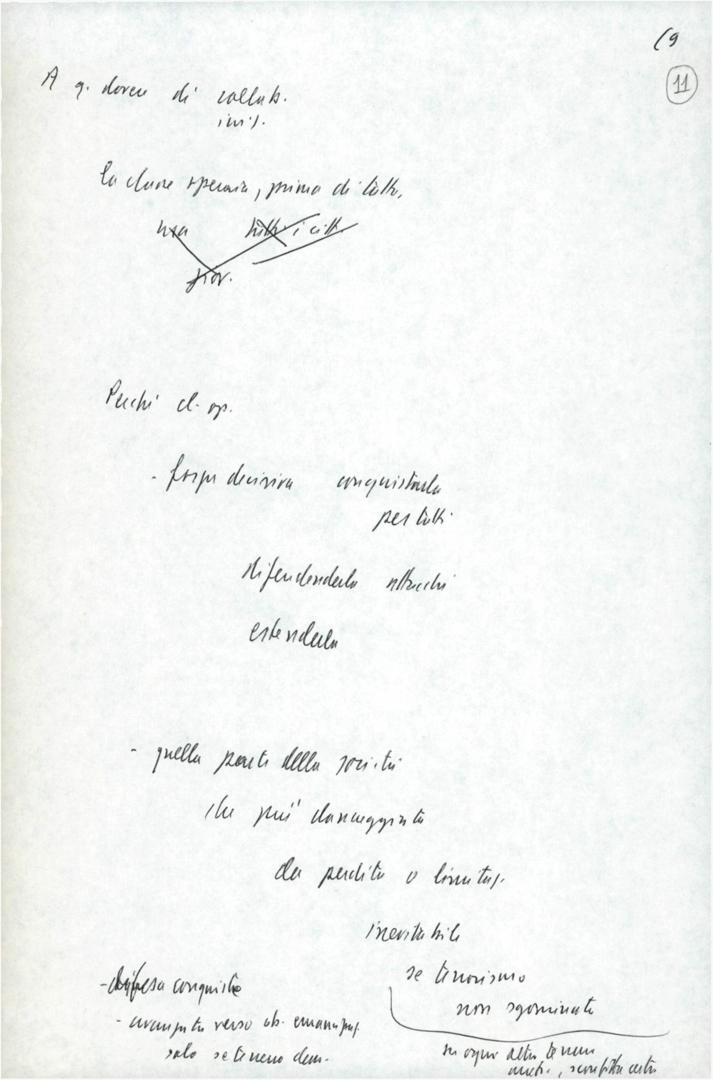 (9
11
A q. dovere di collab.
inis.
la classe operaia, prima di tutto,
tutti i citt.
giov.
Perché cl. op.
- forza decisiva conquistarla
per tutti
difendendola attacchi
estenderla
- quella parte della società
che più danneggiata
da perdita o limitaz.
inevitabile
se terrorismo
non sgominato
- difesa conquiste
- avanzata verso ob. emancipaz.
solo se terreno dem.
su ogni altro terreno
sconfitta certa